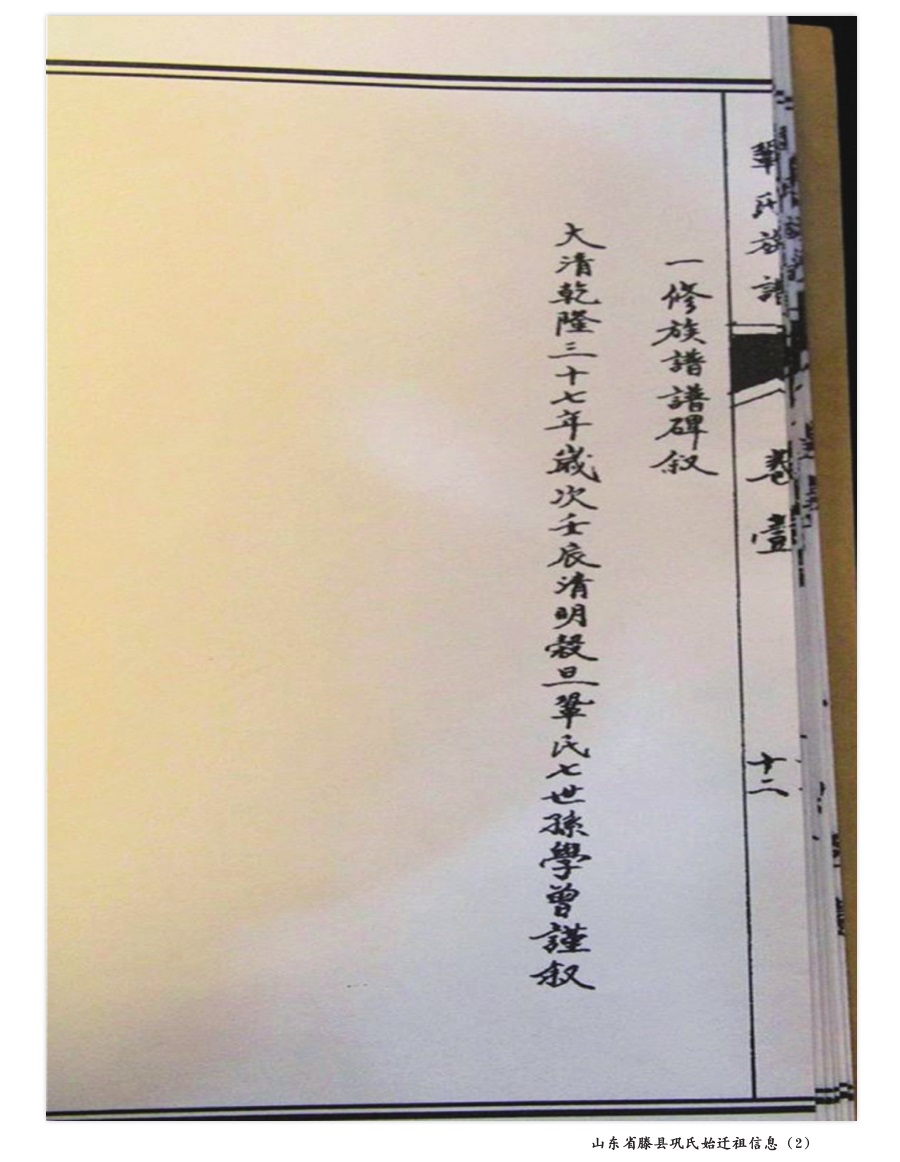 鞏氏族譜
卷壹
十二
一修族譜譜碑叙
大清乾隆三十七年歲次壬辰清明穀旦鞏氏七世孫學曾謹叙
山东省滕县巩氏始迁祖信息（2）